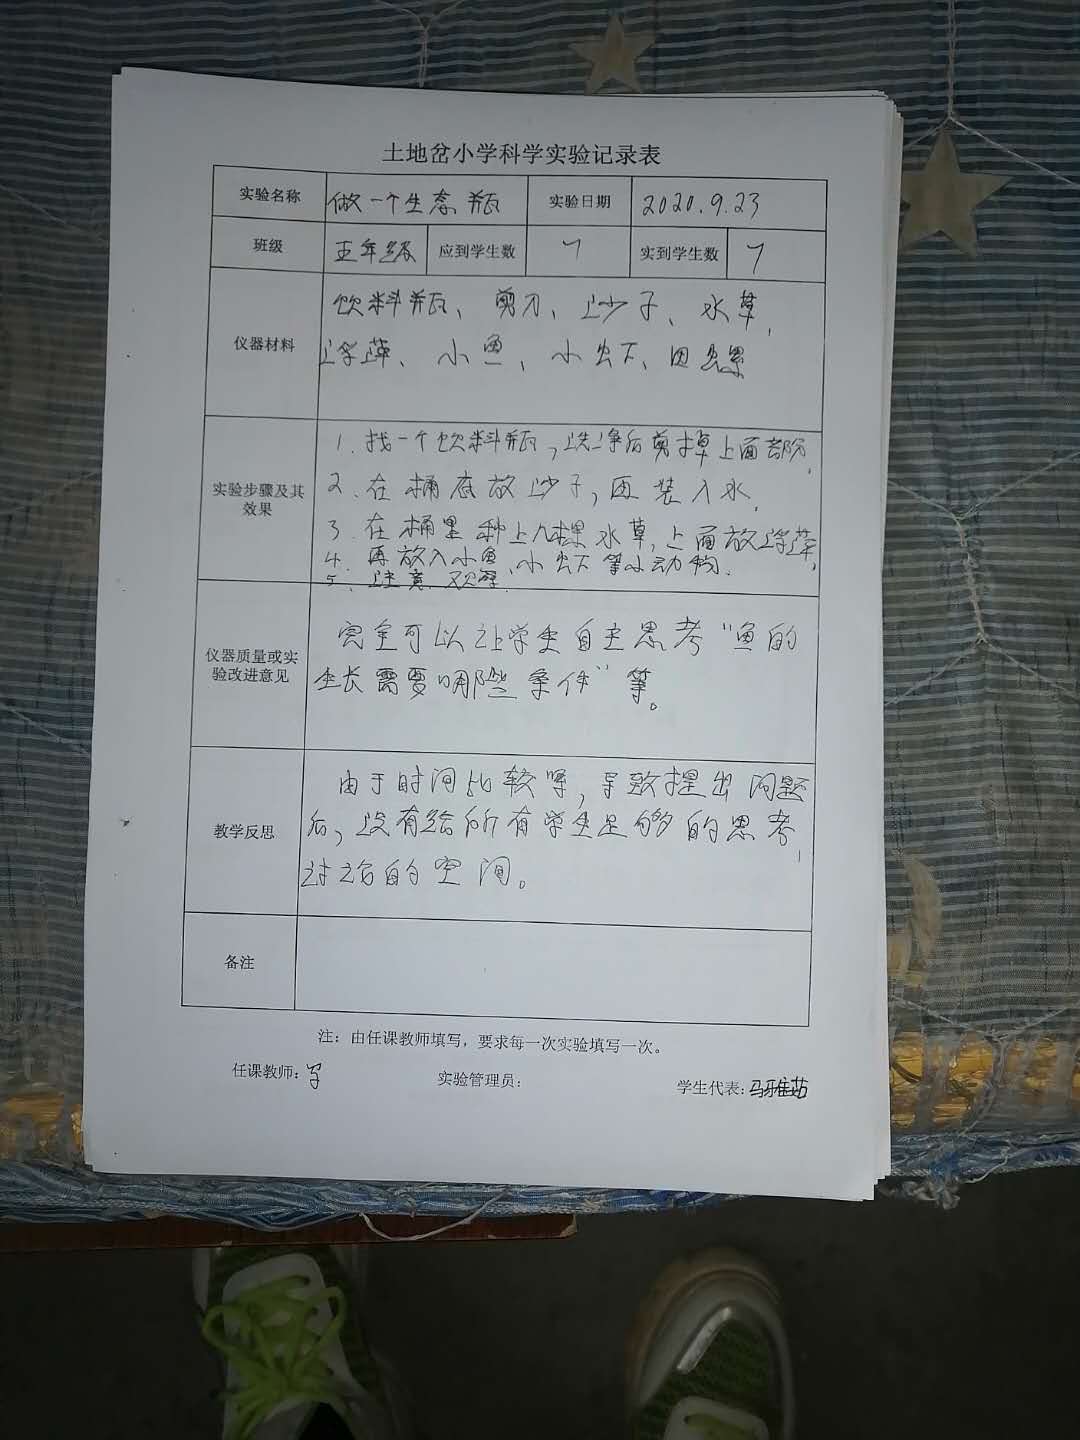 土地岔小学科学实验记录表
实验名称 做一个生态瓶 实验日期 2020.9.23
班级 五年级 应到学生数 7 实到学生数 7
仪器材料
饮料瓶、剪刀、沙子、水草、
浮萍、小鱼、小虾、田螺
实验步骤及其
效果
1.找一个饮料瓶,洗净后剪掉上面部分.
2.在桶底放沙子,再装入水.
3.在桶里种上几棵水草,上面放浮萍,
4.再放入小鱼、小虾等小动物.
5、注意观察.
仪器质量或实
验改进意见
完全可以让学生自主思考“鱼的
生长需要哪些条件”等。
教学反思
由于时间比较 ,导致提出问题
后,没有给所有学生足够的思考,
讨论的空间。
备注
注：由任课教师填写，要求每一次实验填写一次。
任课教师: 实验管理员： 学生代表:马雅茹